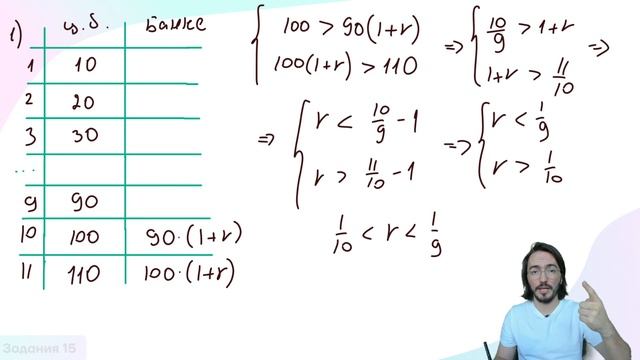 1) ц.б. Банке
1 10
2 20
3 30
...
9 90
10 100 90·(1+r)
11 110 100·(1+r)
{ 100 > 90(1+r)
100(1+r) > 110
=> { 10/9 > 1+r =>
1+r > 11/10
=> { r < 10/9 - 1
r > 11/10 - 1
=> { r < 1/9
r > 1/10
1/10 < r < 1/9
Задания 15